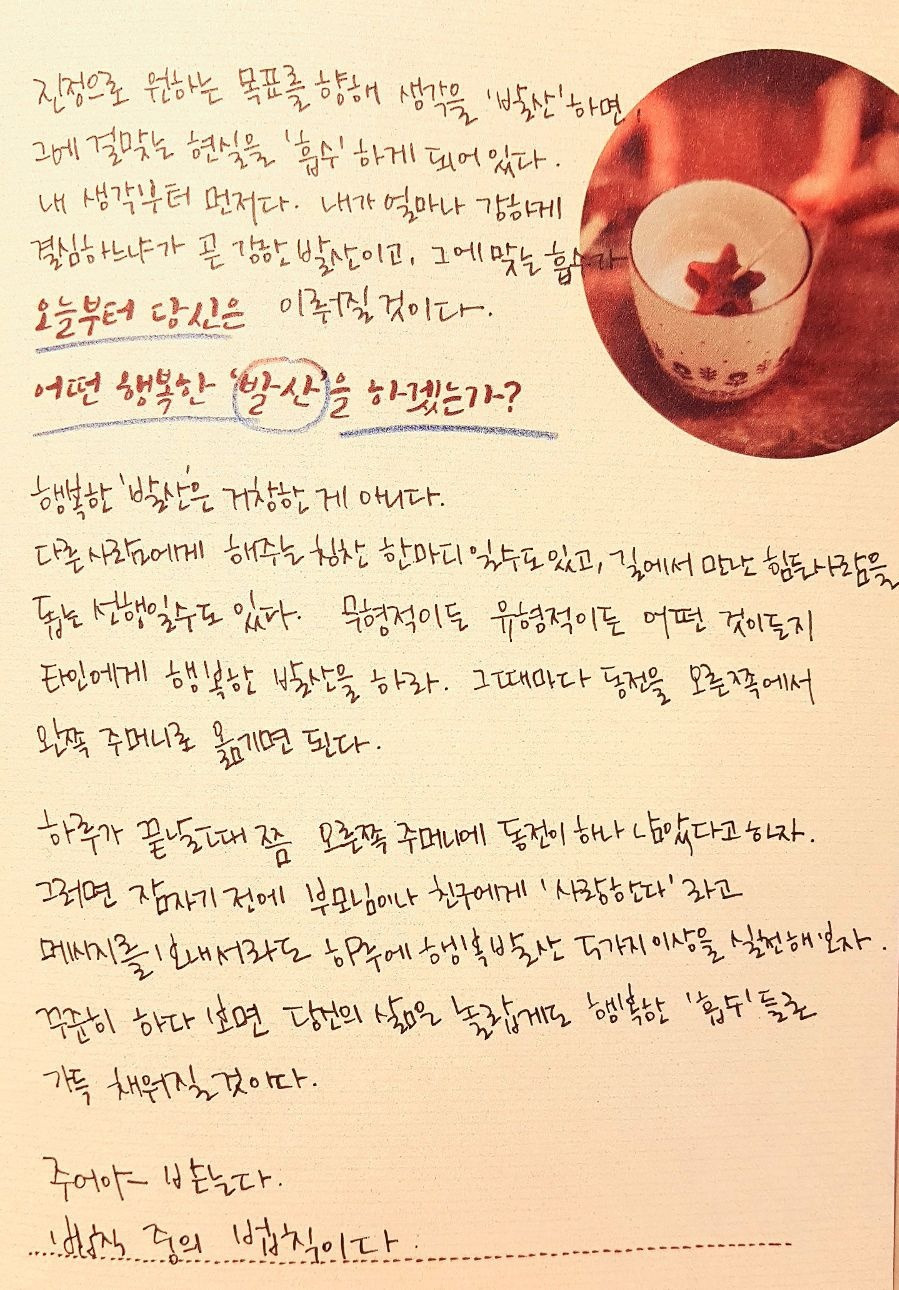 진정으로 원하는 목표를 향해 생각을 '발산'하면,
그에 걸맞는 현실을 '흡수'하게 되어 있다.
내 생각부터 먼저다. 내가 얼마나 강하게
결심하느냐가 곧 강한 발산이고, 그에 맞는 흡수가
이루어질 것이다.
오늘부터 당신은
어떤 행복한 '발산'을 하겠는가?
행복한 '발산'은 거창한 게 아니다.
다른 사람에게 해주는 칭찬 한마디 일수도 있고, 길에서 만난 힘든사람을
돕는 선행일수도 있다. 무형적이든 유형적이든 어떤 것이든지
타인에게 행복한 발산을 하라. 그때마다 동전을 오른쪽에서
왼쪽 주머니로 옮기면 된다.
하루가 끝날때 쯤 오른쪽 주머니에 동전이 하나 남았다고 하자.
그러면 잠자기 전에 부모님이나 친구에게 '사랑한다'라고
메시지를 보내서라도 하루에 행복발산 두가지 이상을 실천해보자.
꾸준히 하다 보면 당신의 삶은 놀랍게도 행복한 '흡수'들로
가득 채워질 것이다.
주어야 받는다.
법칙 중의 법칙이다.